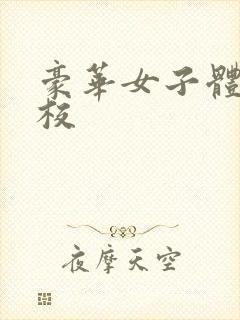 豪華女子體
板
夜摩天空